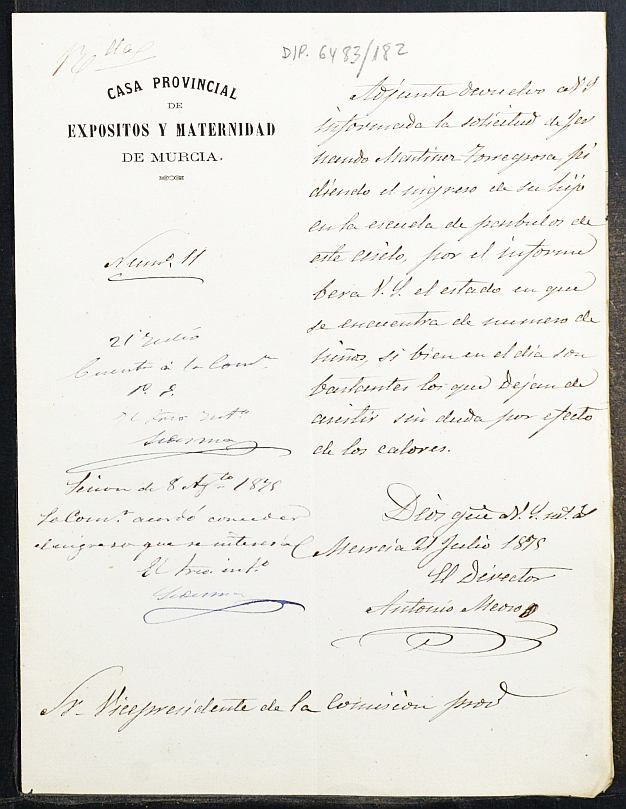 DIP. 6483/182
CASA PROVINCIAL
DE
EXPOSITOS Y MATERNIDAD
DE MURCIA.
Num.º 11
Adjunta devuelvo a V.S.
informada la solicitud de Fer
nando Martinez Torregrosa pi
diendo el ingreso de su hijo
en la escuela de parbulos de
este asilo, por el informe
bera V.S. el estado en que
se encuentra de numero de
niños, si bien en el dia son
bastantes los que dejan de
asistir sin duda por efecto
de los calores.
Dios gûe a V. S. m.s a.s
Murcia 21 Julio 1875
El Director
Antonio
21 Julio
Cuenta á la Com.n
P. E.
El Srio int.º
Sesion de 8 Ag.to 1875
La Com.n acordó conceder
el ingreso que se interesa
El Srio int.º
Sr. Vicepresidente de la Comision prov